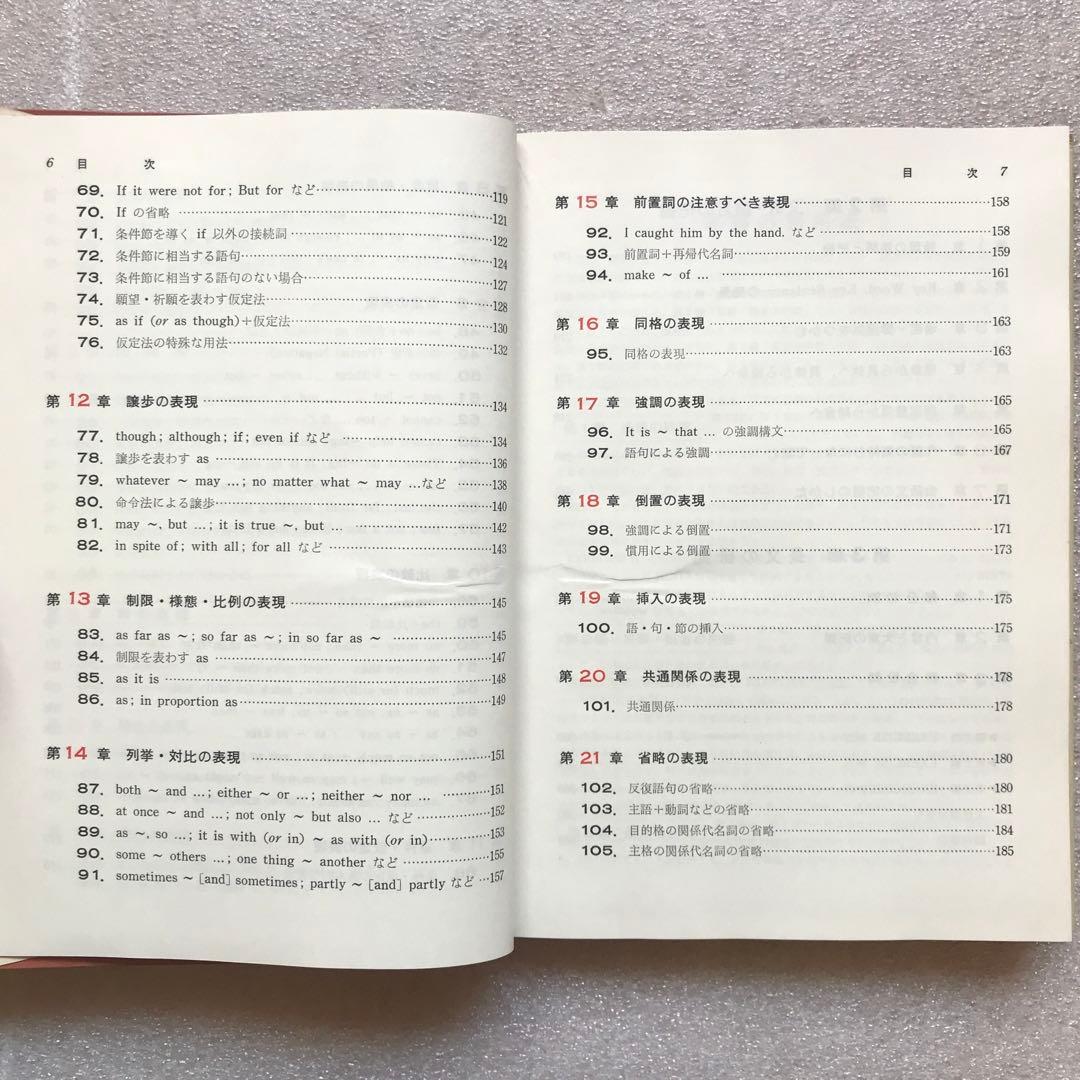 6 目 次
69. If it were not for; But for など……119
70. If の省略……121
71. 条件節を導く if 以外の接続詞……122
72. 条件節に相当する語句……124
73. 条件節に相当する語句のない場合……127
74. 願望・祈願を表わす仮定法……128
75. as if (or as though)+仮定法……130
76. 仮定法の特殊な用法……132
第12章 譲歩の表現……134
77. though; although; if; even if など……134
78. 譲歩を表わす as……136
79. whatever ~ may …; no matter what ~ may …など……138
80. 命令法による譲歩……140
81. may ~, but …; it is true ~, but ………142
82. in spite of; with all; for all など……143
第13章 制限・様態・比例の表現……145
83. as far as ~; so far as ~; in so far as ~……145
84. 制限を表わす as……147
85. as it is……148
86. as; in proportion as……149
第14章 列挙・対比の表現……151
87. both ~ and …; either ~ or …; neither ~ nor ………151
88. at once ~ and …; not only ~ but also … など……152
89. as ~, so …; it is with (or in) ~ as with (or in)……153
90. some ~ others …; one thing ~ another など……155
91. sometimes ~ [and] sometimes; partly ~ [and] partly など…157
目 次 7
第15章 前置詞の注意すべき表現……158
92. I caught him by the hand. など……158
93. 前置詞+再帰代名詞……159
94. make ~ of ………161
第16章 同格の表現……163
95. 同格の表現……163
第17章 強調の表現……165
96. It is ~ that … の強調構文……165
97. 語句による強調……167
第18章 倒置の表現……171
98. 強調による倒置……171
99. 慣用による倒置……173
第19章 挿入の表現……175
100. 語・句・節の挿入……175
第20章 共通関係の表現……178
101. 共通関係……178
第21章 省略の表現……180
102. 反復語句の省略……180
103. 主語+動詞などの省略……181
104. 目的格の関係代名詞の省略……184
105. 主格の関係代名詞の省略……185